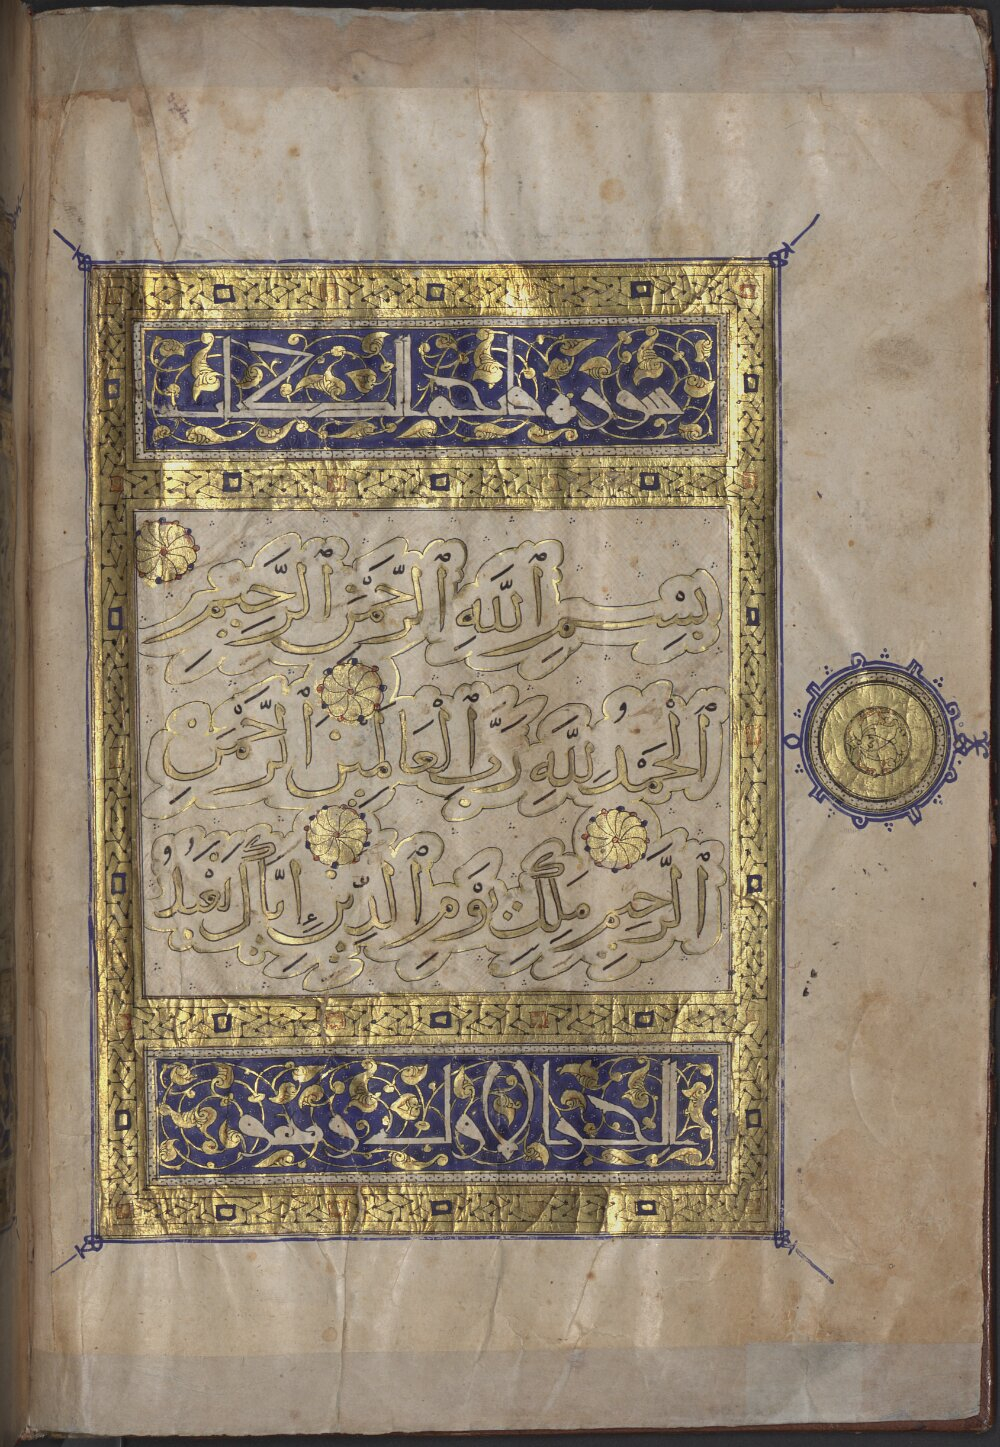 سورة فاتحة الكتاب
بِسْمِ ٱللَّهِ ٱلرَّحْمَنِ ٱلرَّحِيمِ
ٱلْحَمْدُ لِلَّهِ رَبِّ ٱلْعَالَمِينَ ٱلرَّحْمَنِ
ٱلرَّحِيمِ مَلِكِ يَوْمِ ٱلدِّينِ إِيَّاكَ نَعْبُدُ
الاول